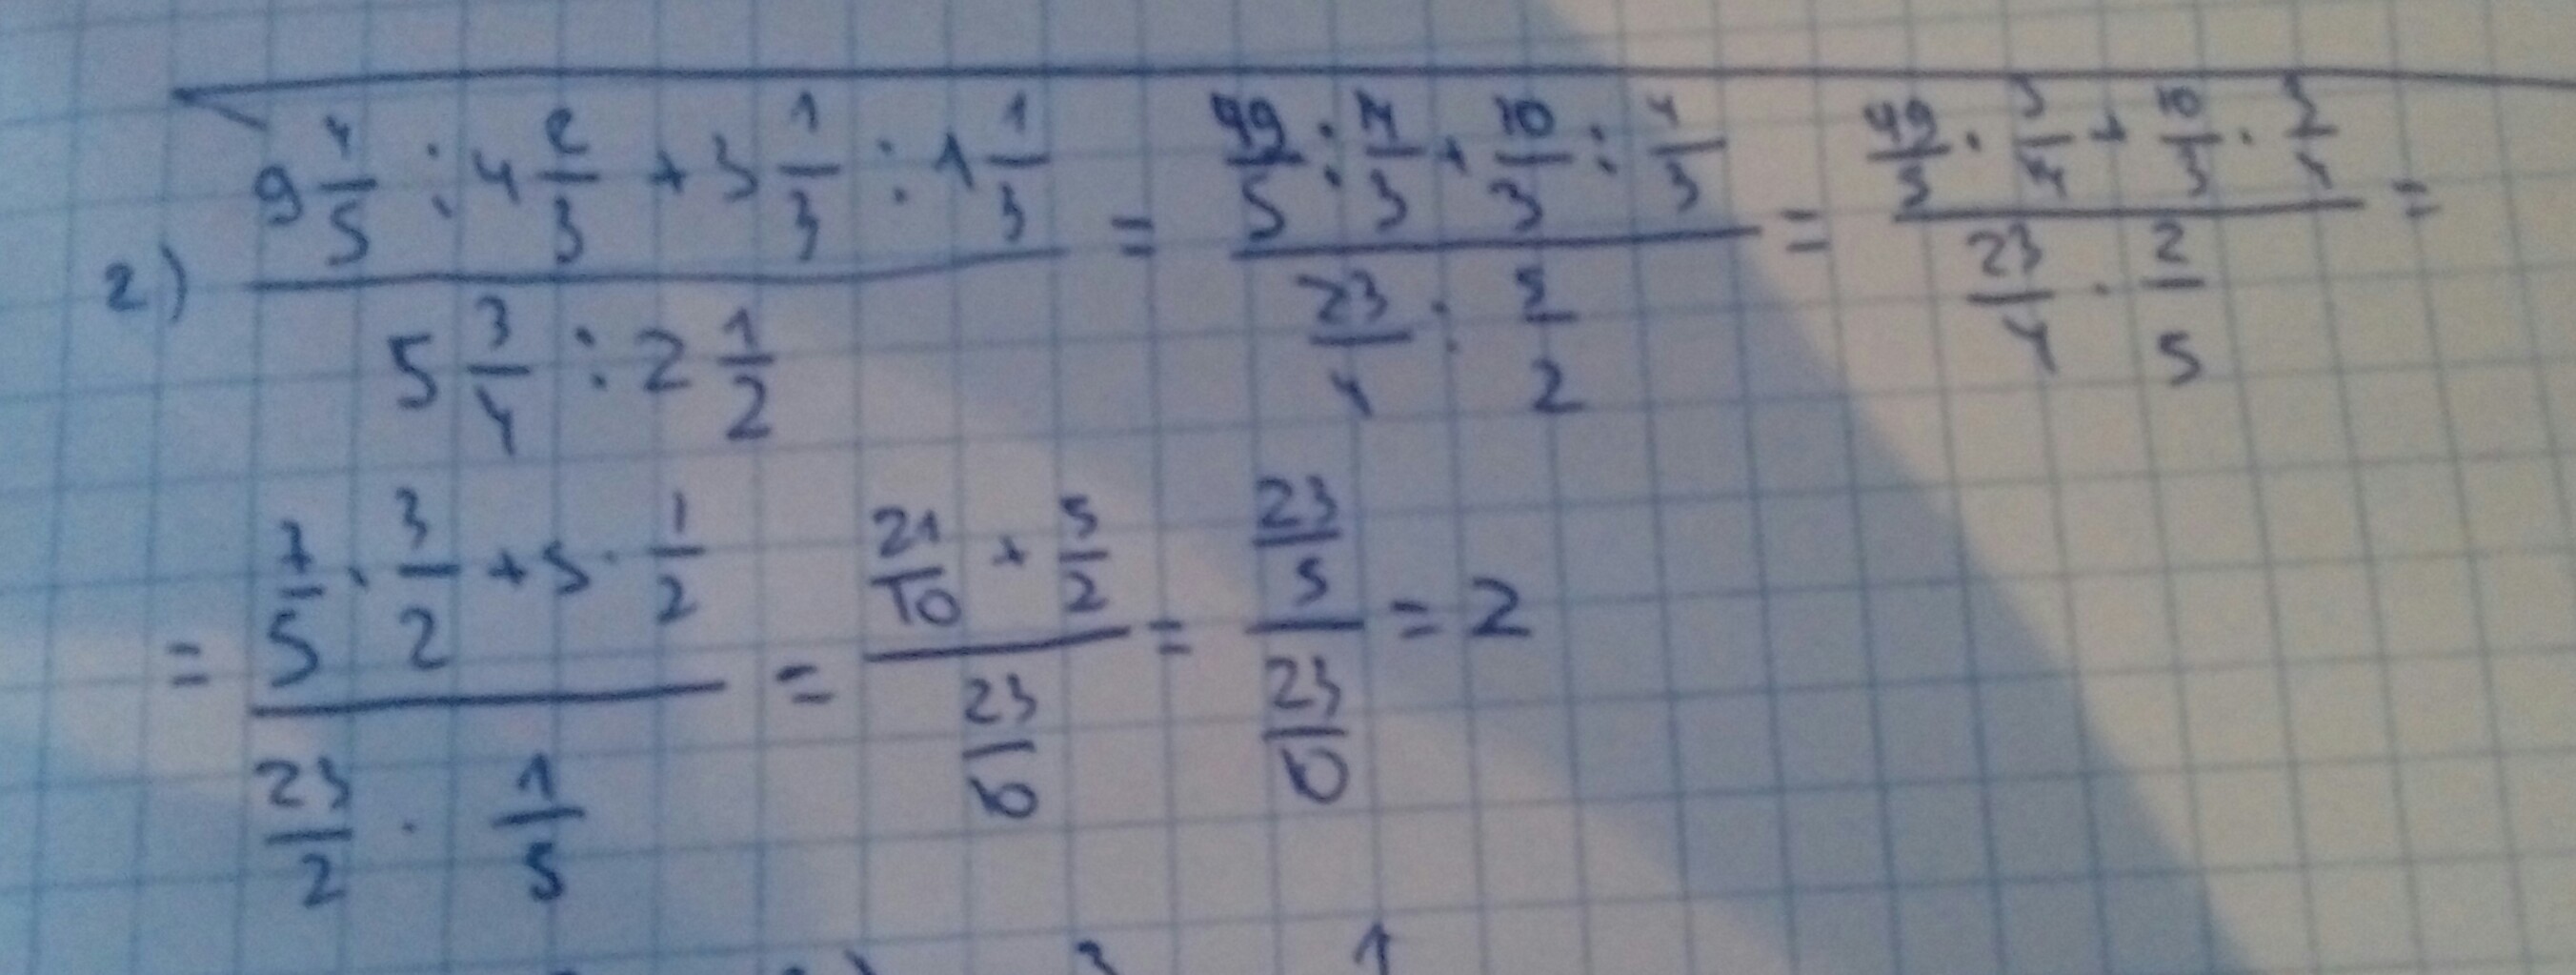 2) (9 4/5 : 4 2/3 + 3 1/3 : 1 1/3) / (5 3/4 : 2 1/2) = (49/5 : 14/3 + 10/3 : 4/3) / (23/4 : 5/2) = (49/5 · 3/14 + 10/3 · 3/4) / (23/4 · 2/5) =
= (7/5 · 3/2 + 5 · 1/2) / (23/2 · 1/5) = (21/10 + 5/2) / (23/10) = (23/5) / (23/10) = 2